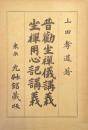 上田 著
普勸坐禪儀講義
坐禪用心記講義
東京 光融館藏版